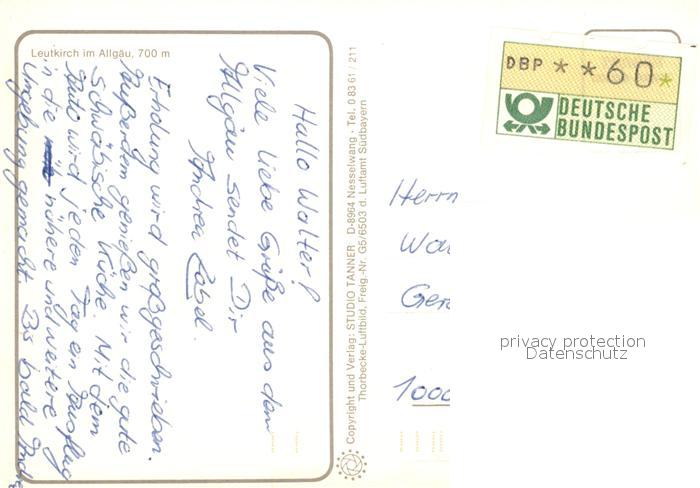 Leutkirch im Allgäu, 700 m
Hallo Walter!
Viele liebe Grüße aus dem
Allgäu sendet Dir
Andrea Zabel.
Erholung wird großgeschrieben.
Außerdem genießen wir die gute
schwäbische Küche. Mit dem
Auto wird jeden Tag ein Ausflug
in die nähere und weitere
Umgebung gemacht. Bis bald
Copyright und Verlag: STUDIO TANNER D-8964 Nesselwang · Tel. 0 83 61 / 211
Thorbecke-Luftbild, Freig.-Nr. G5/6503 d. Luftamt Südbayern
DBP * * 60 *
DEUTSCHE
BUNDESPOST
Herrn
Wal
Ger
1000
privacy protection
Datenschutz